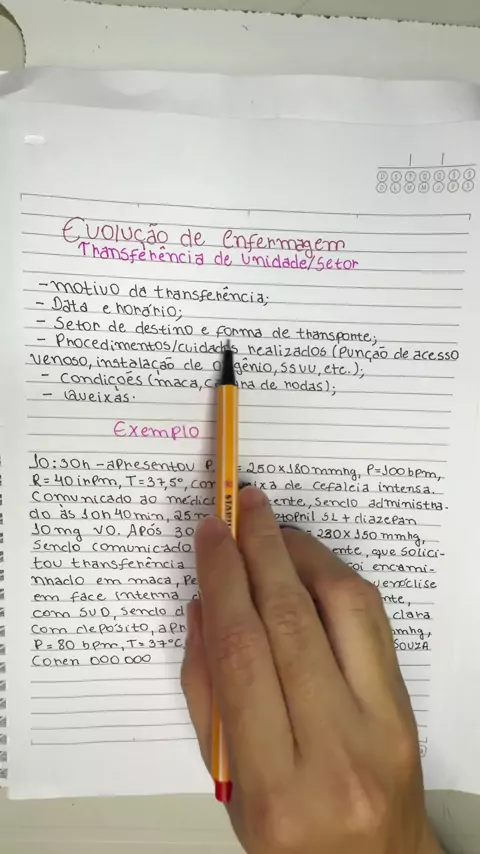 Evolução de enfermagem
Transferência de unidade/setor
- motivo da transferência;
- Data e horário;
- Setor de destino e forma de transporte;
- Procedimentos/cuidados realizados (punção de acesso
venoso, instalação de oxigênio, SSVV, etc.);
- Condições (maca, cadeira de rodas);
- Queixas.
Exemplo
10:30h - apresentou = 250x180mmhg, P=100bpm,
R=40inpm, T=37,5°, com queixa de cefaleia intensa.
Comunicado ao médico sendo administra-
do às 10h 40min, 25m SL + diazepan
10mg VO. Após 30 = 230x150mmhg,
Sendo comunicado que solici-
tou transferência encami-
nhado em maca, venóclise
em face interna
com SVD, sendo clara
com depósito,
P=80bpm, T=37°C Souza
Coren 000 000
STABILO